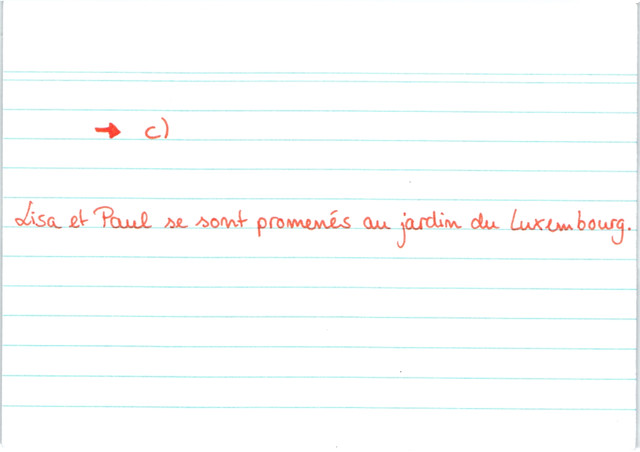 → c)
Lisa et Paul se sont promenés au jardin du Luxembourg.